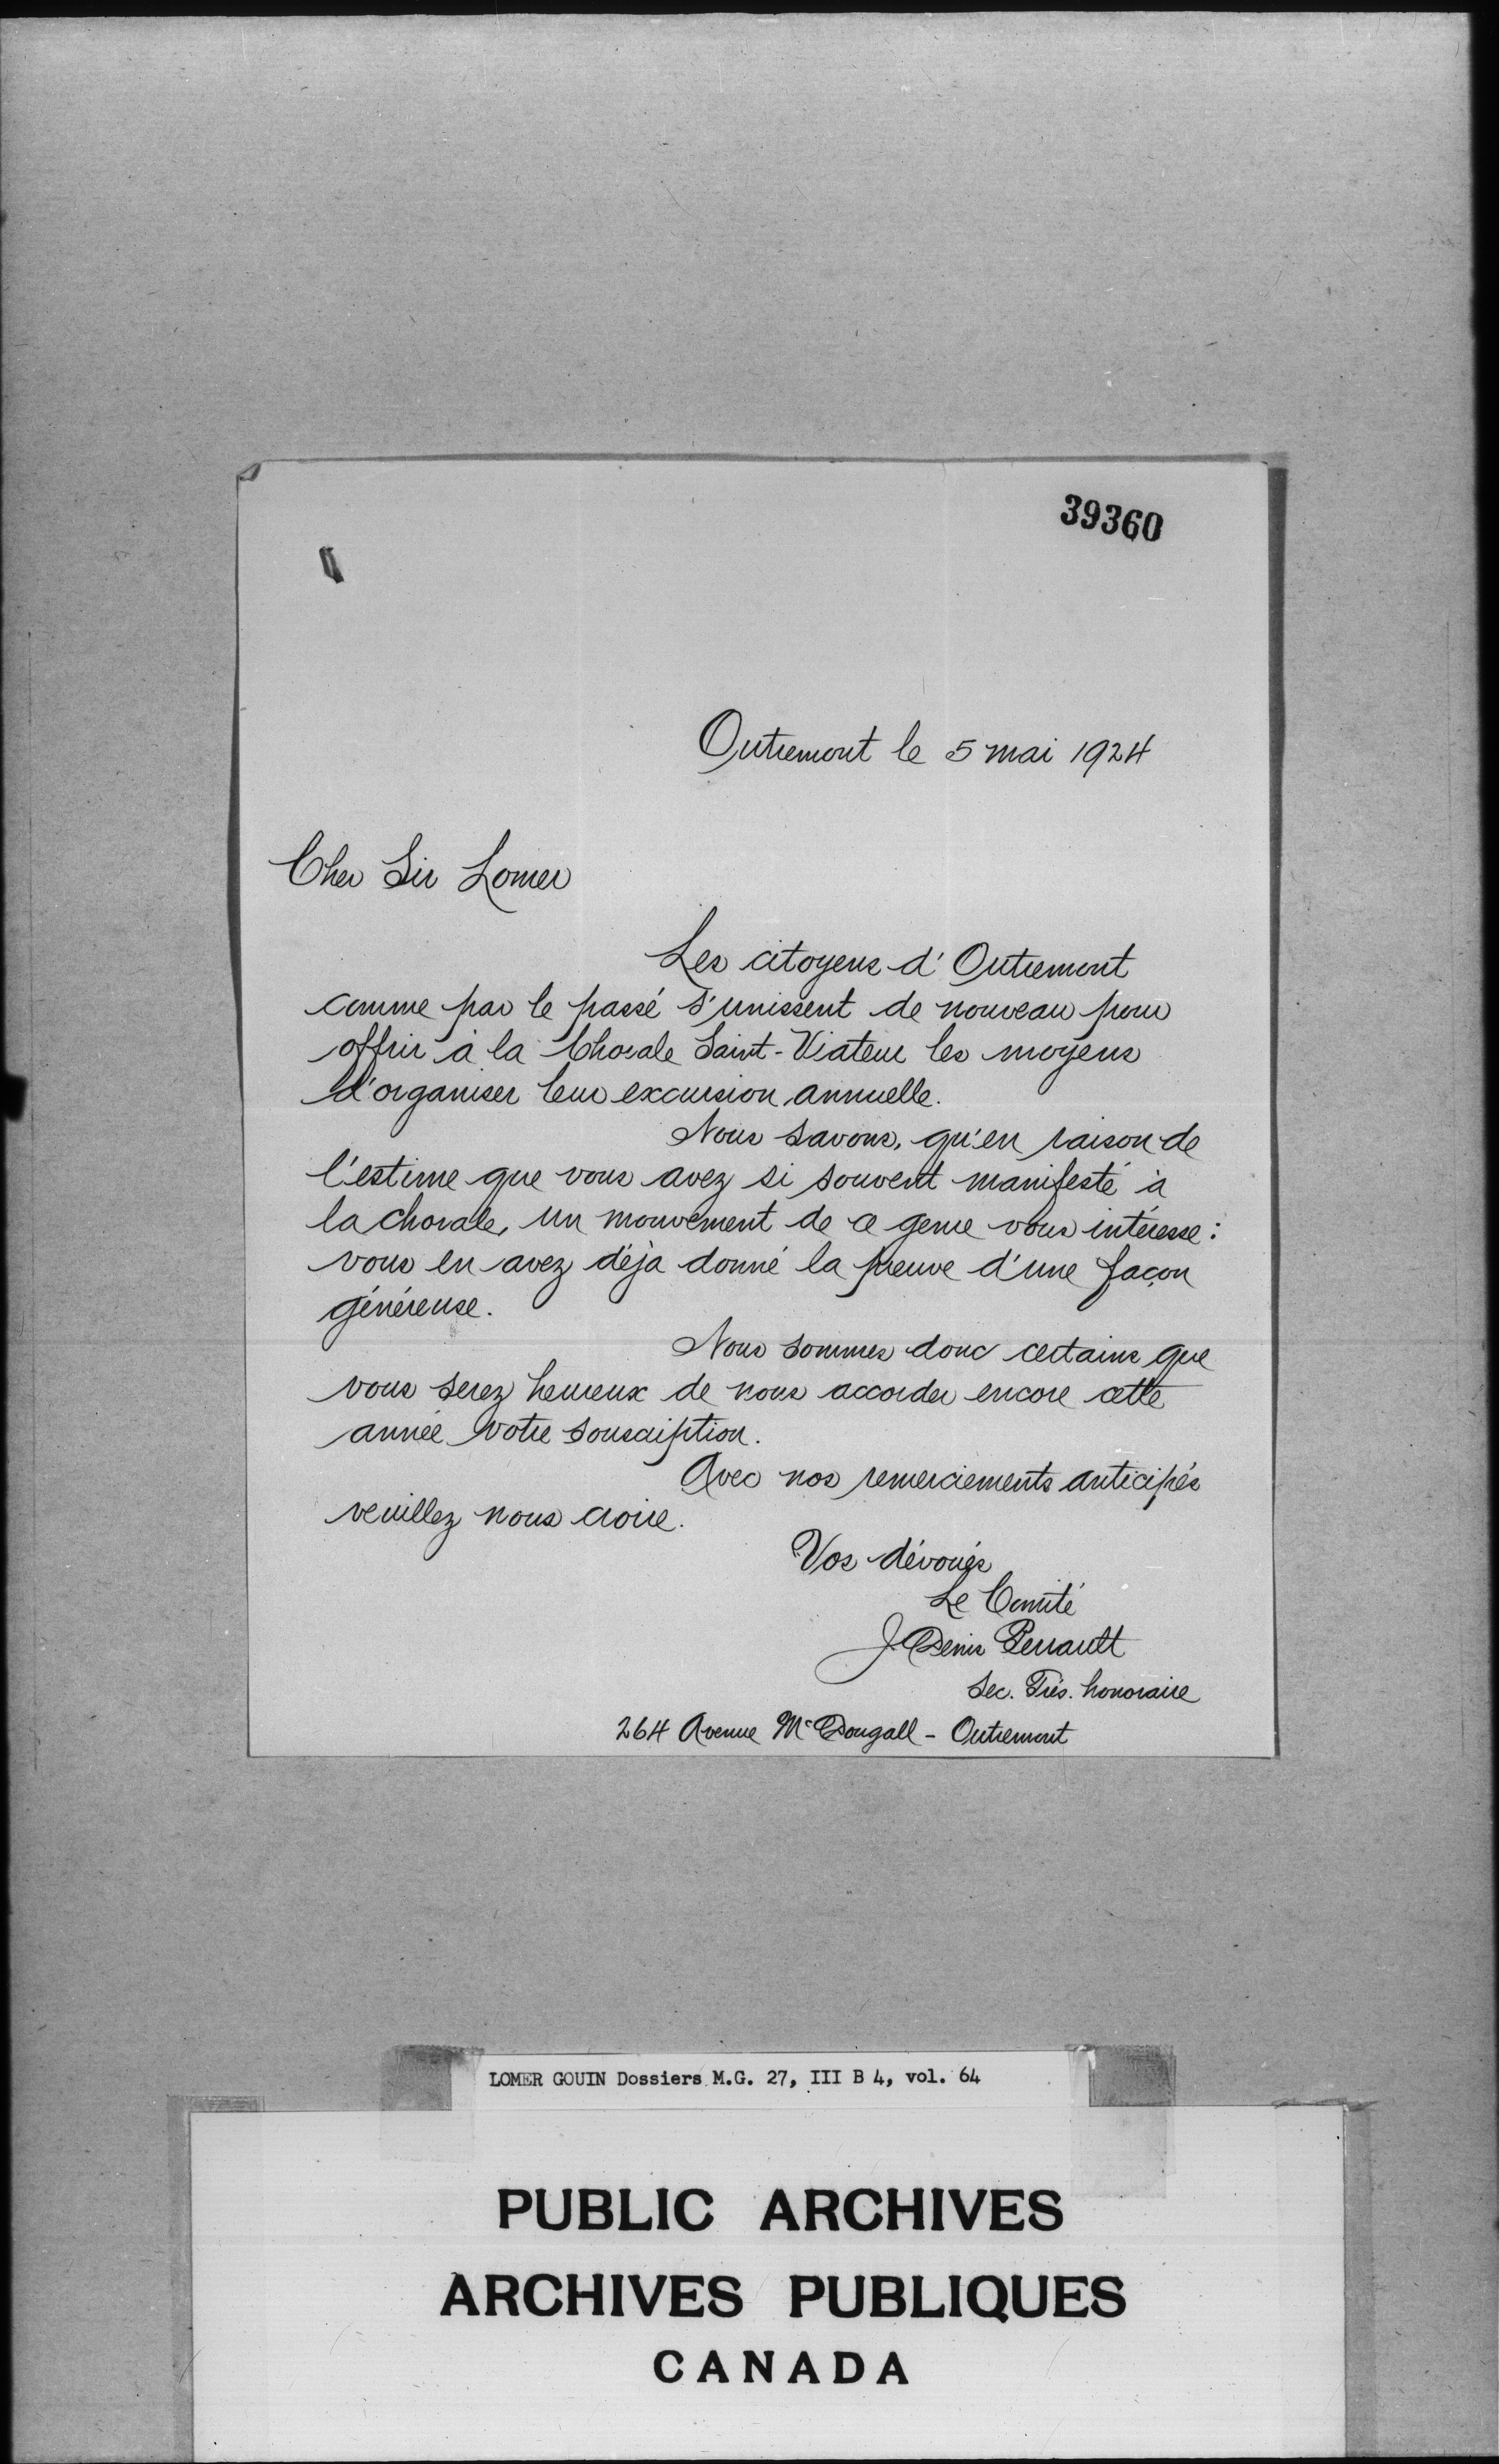 39360
Outremont le 5 mai 1924
Cher Sir Lomer
Les citoyens d'Outremont
comme par le passé s'unissent de nouveau pour
offrir à la Chorale Saint-Viateur les moyens
d'organiser leur excursion annuelle.
Nous savons, qu'en raison de
l'estime que vous avez si souvent manifesté à
la chorale, un mouvement de ce genre vous intéresse :
vous en avez déja donné la preuve d'une façon
généreuse.
Nous sommes donc certains que
vous serez heureux de nous accorder encore cette
année votre souscription.
Avec nos remerciements anticipés
veuillez nous croire.
Vos dévoués
Le Comité
J. Denis Perrault
Sec. Trés. honoraire
264 Avenue McDougall - Outremont
LOMER GOUIN Dossiers M.G. 27, III B 4, vol. 64
PUBLIC ARCHIVES
ARCHIVES PUBLIQUES
CANADA